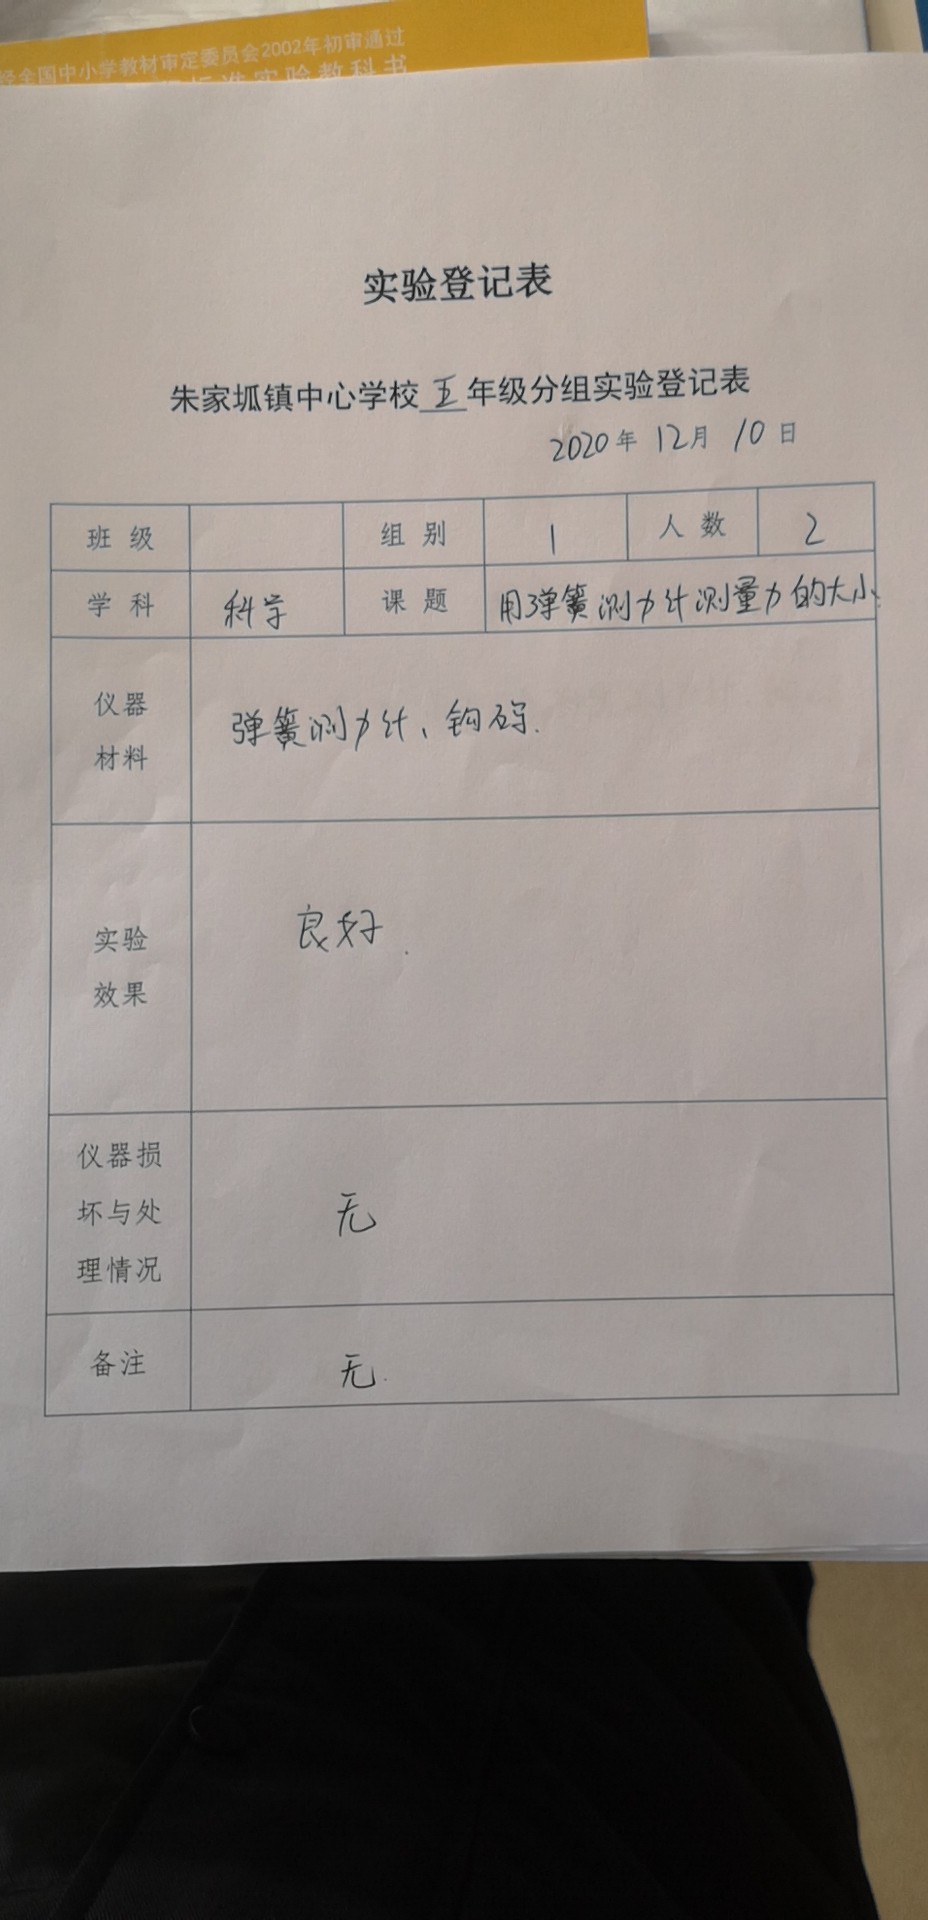 经全国中小学教材审定委员会2002年初审通过
标准实验教科书
实验登记表
朱家坬镇中心学校五年级分组实验登记表
2020年12月10日
班级 组别 1 人数 2
学科 科学 课题 用弹簧测力计测量力的大小
仪器
材料
弹簧测力计、钩码.
实验
效果
良好.
仪器损
坏与处
理情况
无
备注 无.